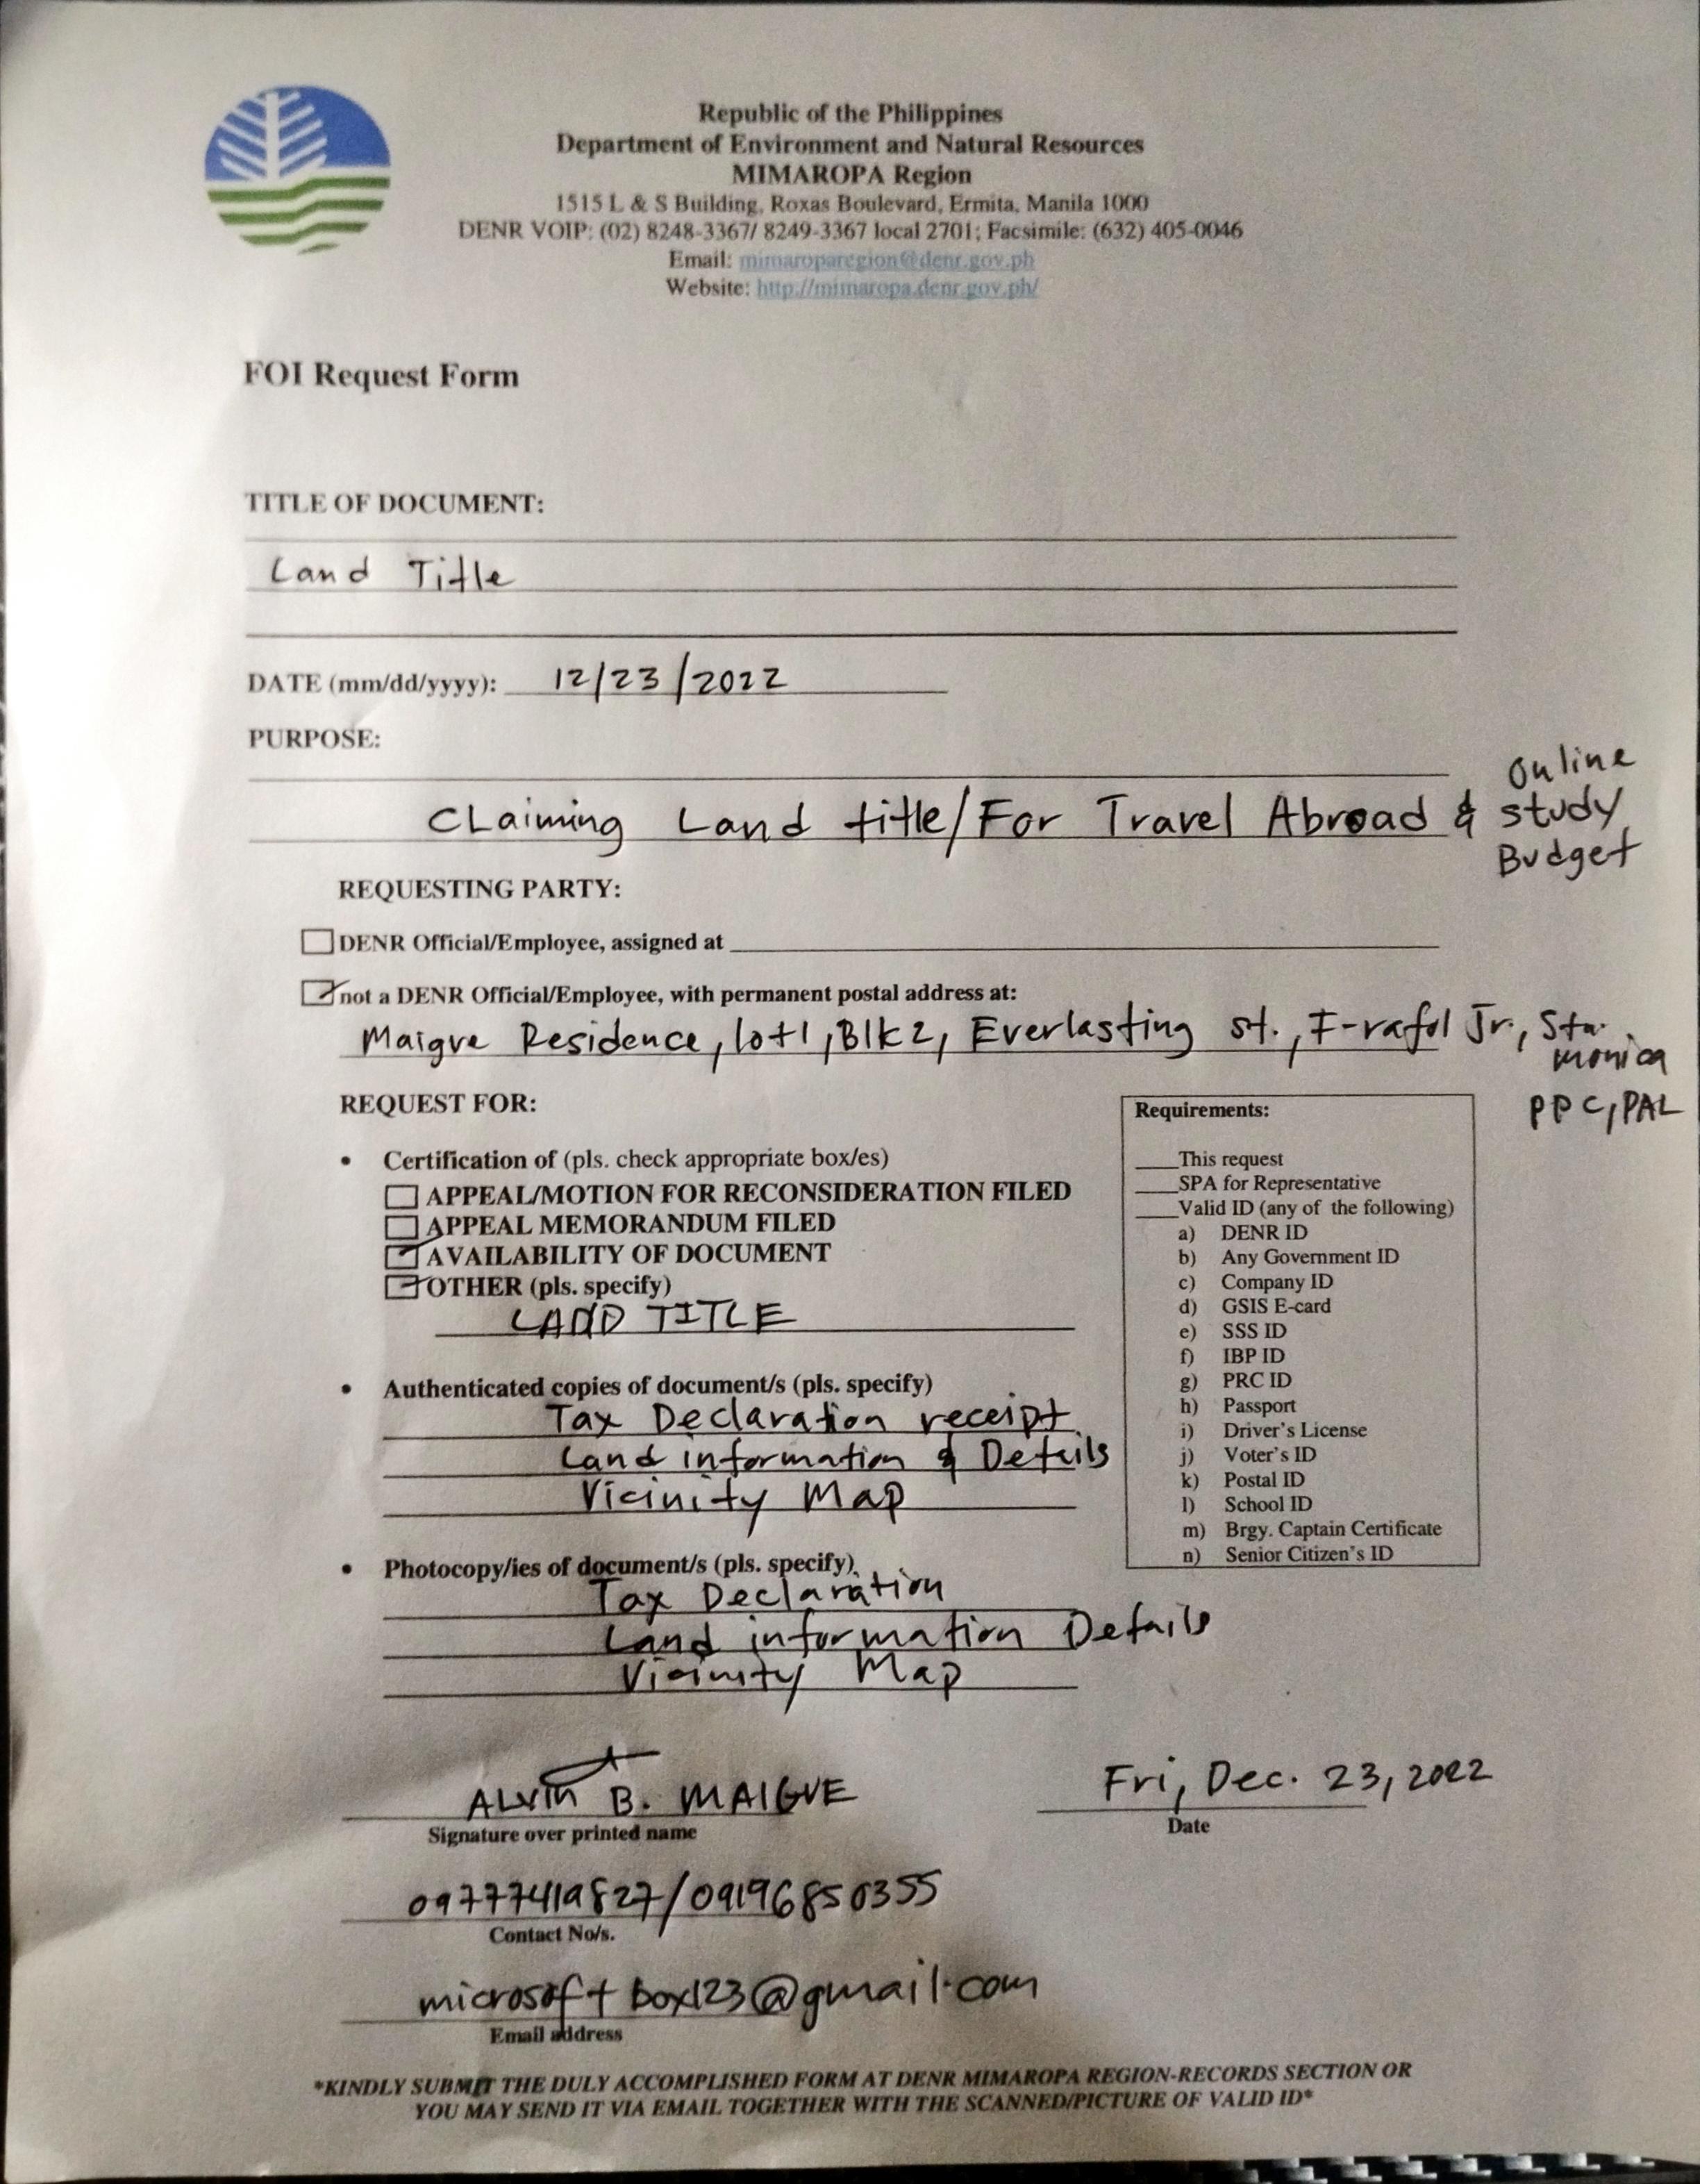 Republic of the Philippines
Department of Environment and Natural Resources
MIMAROPA Region
1515 L & S Building, Roxas Boulevard, Ermita, Manila 1000
DENR VOIP: (02) 8248-3367/ 8249-3367 local 2701; Facsimile: (632) 405-0046
Email: mimaroparegion@denr.gov.ph
Website: http://mimaropa.denr.gov.ph/
FOI Request Form
TITLE OF DOCUMENT:
Land Title
DATE (mm/dd/yyyy): 12/23/2022
PURPOSE:
CLaiming Land title/For Travel Abroad & Online
study
Budget
REQUESTING PARTY:
DENR Official/Employee, assigned at
not a DENR Official/Employee, with permanent postal address at:
Maigve Residence, lot1, Blk2, Everlasting st., Jr., Sta.
monica
PPC, PAL
REQUEST FOR:
• Certification of (pls. check appropriate box/es)
APPEAL/MOTION FOR RECONSIDERATION FILED
APPEAL MEMORANDUM FILED
AVAILABILITY OF DOCUMENT
OTHER (pls. specify)
LAND TITLE
• Authenticated copies of document/s (pls. specify)
Tax Declaration receipt
Land information & Details
Vicinity Map
• Photocopy/ies of document/s (pls. specify)
Tax Declaration
Land information Details
Vicinity Map
Requirements:
___This request
___SPA for Representative
___Valid ID (any of the following)
a) DENR ID
b) Any Government ID
c) Company ID
d) GSIS E-card
e) SSS ID
f) IBP ID
g) PRC ID
h) Passport
i) Driver's License
j) Voter's ID
k) Postal ID
l) School ID
m) Brgy. Captain Certificate
n) Senior Citizen's ID
ALVIN B. MAIGVE
Signature over printed name
Fri, Dec. 23, 2022
Date
09777419827/09196850355
Contact No/s.
microsoftbox123@gmail.com
Email address
*KINDLY SUBMIT THE DULY ACCOMPLISHED FORM AT DENR MIMAROPA REGION-RECORDS SECTION OR
YOU MAY SEND IT VIA EMAIL TOGETHER WITH THE SCANNED/PICTURE OF VALID ID*